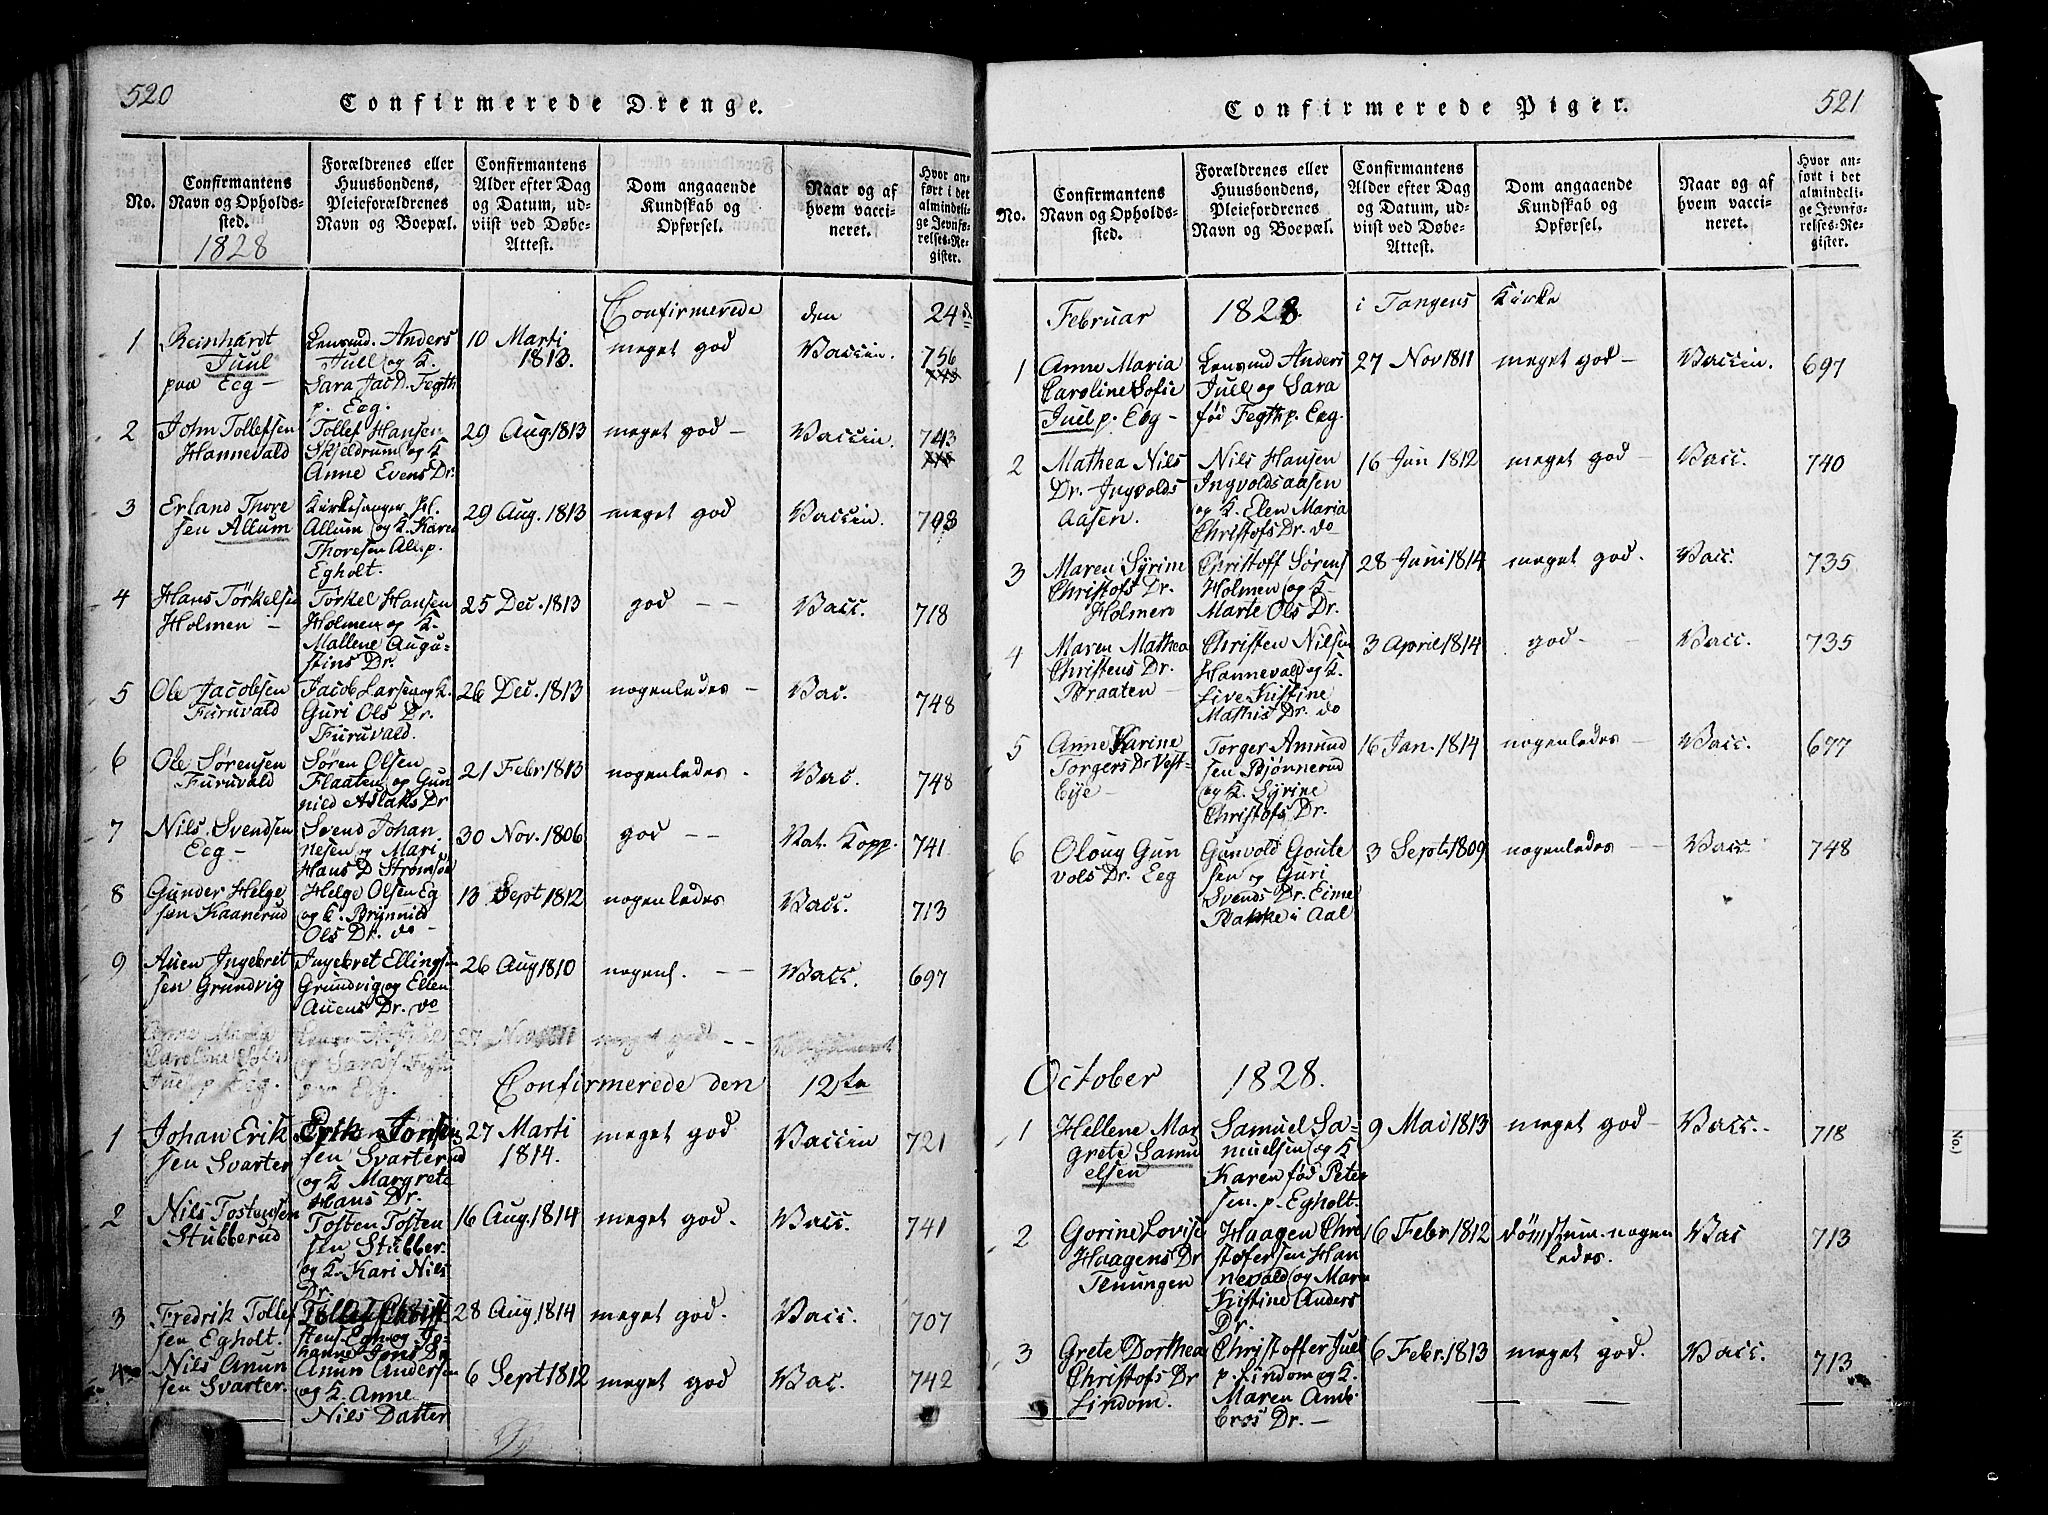 520
Confirmerede Drenge.
No.
Confirmantens
Navn og Opholds-
sted.
1828
Forældrenes eller
Huusbondens,
Pleieforældrenes
Navn og Boepæl.
Confirmantens
Alder efter Dag
og Datum, ud-
viist ved Døbe-
Attest.
Dom angaaende
Kundskab og
Opførsel.
Naar og af
hvem vacci-
neret.
Hvor an-
ført i det
almindeli-
ge Jevnfø-
relses-Re-
gister.
Confirmerede den 24de
1
Reinhardt
Juul
paa Eeg -
Lensmd. Anders
Juell og K.
Sara Jac D. Fegth
p. Eeg.
10 Marti
1813.
meget god
Vaccin.
756
2
John Tollefsen
Hannevald
Tollef Hansen
Skjeldrum og K
Anne Evens Dr.
29 Aug. 1813
meget god -
Vaccin.
743
3
Erland Thore
sen Allum
Kirkesanger
Allum og K. Karen
Thoresen All. p.
Egholt.
29 Aug. 1813
meget god
Vaccin.
703
4
Hans Törkelsen
Holmen -
Törkel Hansen
Holmen og K.
Mallene Augu-
stins Dr.
25 Dec. 1813
god - -
Vacc.
718
5
Ole Jacobsen
Furuvald
Jacob Larsen og K.
Guri Ols Dr.
Furuvald.
26 Dec. 1813
nogenledes -
Vac.
748
6
Ole Sørensen
Furuvald
Søren Olsen
Flaaten og Gun
nild Aslaks Dr
21 Febr 1813
nogenledes -
Vac.
748
7
Nils Svendsen
Eeg -
Svend Johan
nesen og Mari
Hans D Strømsøe
30 Nov. 1806
god - -
Nat. Kopp.
741
8
Gunder Helge
sen Kaanerud
Helge Olsen Eg
og K. Brynnild
Ols Dr. do -
13 Sept 1812
nogenledes
Vacc.
713
9
Auen Ingebrit
sen Grundvig
Ingebret Ellings
Grundvig og Ellen
Auens Dr. do
26 Aug 1810
nogenl. - -
Vacc.
697
Anne Maria
Caroline Sofie
Juel p Eeg.
og Sara f Fegth
Eeg.
27 Nov 1811
meget god - -
Confirmerede den 12te
1
Johan Erik
sen Svarter
Erik Jon
sen Svarterud
og K Margrete
Hans Dr.
27 Marti
1814.
meget god
Vaccin
721
2
Nils Tostensen
Stubberud
Tosten Tosten
sen Stubber.
og K. Kari Nils
Dr.
16 Aug. 1814
meget god.
Vacc.
741
3
Fredrik Tollef
sen Egholt.
Tollef Christ
stens Egh og Jo-
hanne Jons Dr
28 Aug. 1814
meget god.
Vacc.
707
4
Nils Anun
sen Svarter.
Anun Andersen
og K. Anne
Nils Datter
6 Sept 1812
meget god
Vac.
742
521
Confirmerede Piger.
No.
Confirmantens
Navn og Opholds-
sted.
Forældrenes eller
Huusbondens,
Pleiefordrenes
Navn og Boepæl.
Confirmantens
Alder efter Dag
og Datum, ud-
viist ved Døbe-
Attest.
Dom angaaende
Kundskab og
Opførsel.
Naar og af
hvem vacci-
neret.
Hvor an-
ført i det
almindeli-
ge Jevnfø-
relses-Re-
gister.
Februar 1828 i Tangens Kirke
1
Anne Maria
Caroline Sofie
Juel p. Eeg -
Lensmd Anders
Juel og Sara
fød Fegth p. Eeg.
27 Nov 1811
meget god -
Vaccin.
697
2
Mathea Nils
Dr. Ingvolds
Aasen.
Nils Hansen
Ingvoldsaasen
og K. Elen Maria
Christofs Dr. do
16 Jun 1812
meget god -
Vacc.
740
3
Maren Syrine
Christofs Dr.
Holmen
Christoff Sørens
Holmen og K.
Marte Ols Dr.
28 Juni 1814
meget god.
Vacc.
735
4
Maren Mathea
Christens Dr.
Braaten -
Christen Nilsen
Hannevald og K.
Live Kistine
Mathis Dr. do
3 April 1814
god -
Vacc.
735
5
Anne Karine
Torgers Dr Vest-
Eije -
Torger Amund
sen Bjønnerud
og K. Syrine
Christofs Dr.
16 Jan. 1814
nogenledes -
Vacc.
677
6
Oloug Gun
vols Dr. Eeg
Gunvold Goute
sen og Guri
Svends Dr. Eime
Bakke i Aal
3 Sept. 1809
nogenledes -
Vacc
748
October 1828.
1
Hellene Mar
grete Samu
elsen
Samuel Sa-
muelsen og K
Karen fød Peter
sen. p. Egholt.
9 Mai 1813
meget god -
Vacc.
718
2
Gorine Lovise
Haagens Dr
Tenungen
Haagen Chri
stofersen Han
nevald og Mari
Kistine Anders
Dr.
16 Febr 1812
nogen
ledes.
Vac
713
3
Grete Dorthea
Christofs Dr
Lindom.
Christoffer Juel
p. Lindom og K.
Maren Amb
bros Dr. -
6 Febr. 1813
meget god.
Vacc.
713